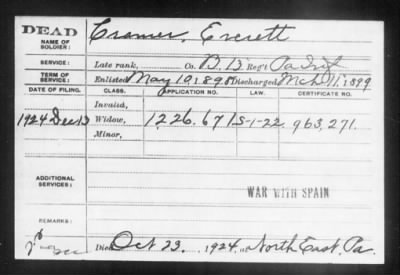 DEAD
NAME OF SOLDIER: Cramer, Everett
SERVICE: Late rank, Co. B. 15 Reg't Pa Inf
TERM OF SERVICE: Enlisted May 10 1898 Discharged Mch 11, 1899
DATE OF FILING. CLASS. APPLICATION NO. LAW. CERTIFICATE NO.
Invalid,
1924 Dec 13 Widow, 1,226.671 S-1-22. 963,271.
Minor,
ADDITIONAL SERVICES:
WAR WITH SPAIN
REMARKS:
Died Oct 23. 1924, North East, Pa.